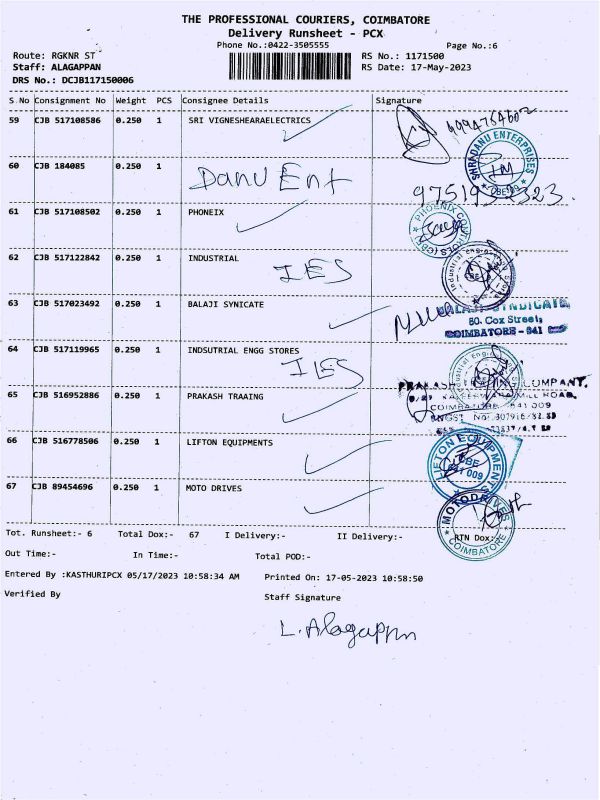 THE PROFESSIONAL COURIERS, COIMBATORE
Delivery Runsheet - PCX
Phone No.:0422-3505555 Page No.:6
Route: RGKNR ST RS No.: 1171500
Staff: ALAGAPPAN RS Date: 17-May-2023
DRS No.: DCJB117150006
S No Consignment No Weight PCS Consignee Details Signature
59 CJB 517108586 0.250 1 SRI VIGNESHEARAELECTRICS
SHRADANU ENTERPRISES
60 CJB 184085 0.250 1 Danu Ent
61 CJB 517108502 0.250 1 PHONEIX
PHOENIX CONTROLS (CBE)
62 CJB 517122842 0.250 1 INDUSTRIAL
IES
63 CJB 517023492 0.250 1 BALAJI SYNICATE
SYNDICATE
80. Cox Street,
COIMBATORE - 641
64 CJB 517119965 0.250 1 INDSUTRIAL ENGG STORES
IES
PRAKASH TRADING COMPANY.
65 CJB 516952886 0.250 1 PRAKASH TRAAING
MILL ROAD,
COIMBATORE 641 009
66 CJB 516778506 0.250 1 LIFTON EQUIPMENTS
LIFTON EQUIPMENTS
CBE
641 009
67 CJB 89454696 0.250 1 MOTO DRIVES
MOTODRIVES
COIMBATORE
Tot. Runsheet:- 6 Total Dox:- 67 I Delivery:- II Delivery:- RTN Dox:-
Out Time:- In Time:- Total POD:-
Entered By :KASTHURIPCX 05/17/2023 10:58:34 AM Printed On: 17-05-2023 10:58:50
Verified By Staff Signature
L. Alagappan